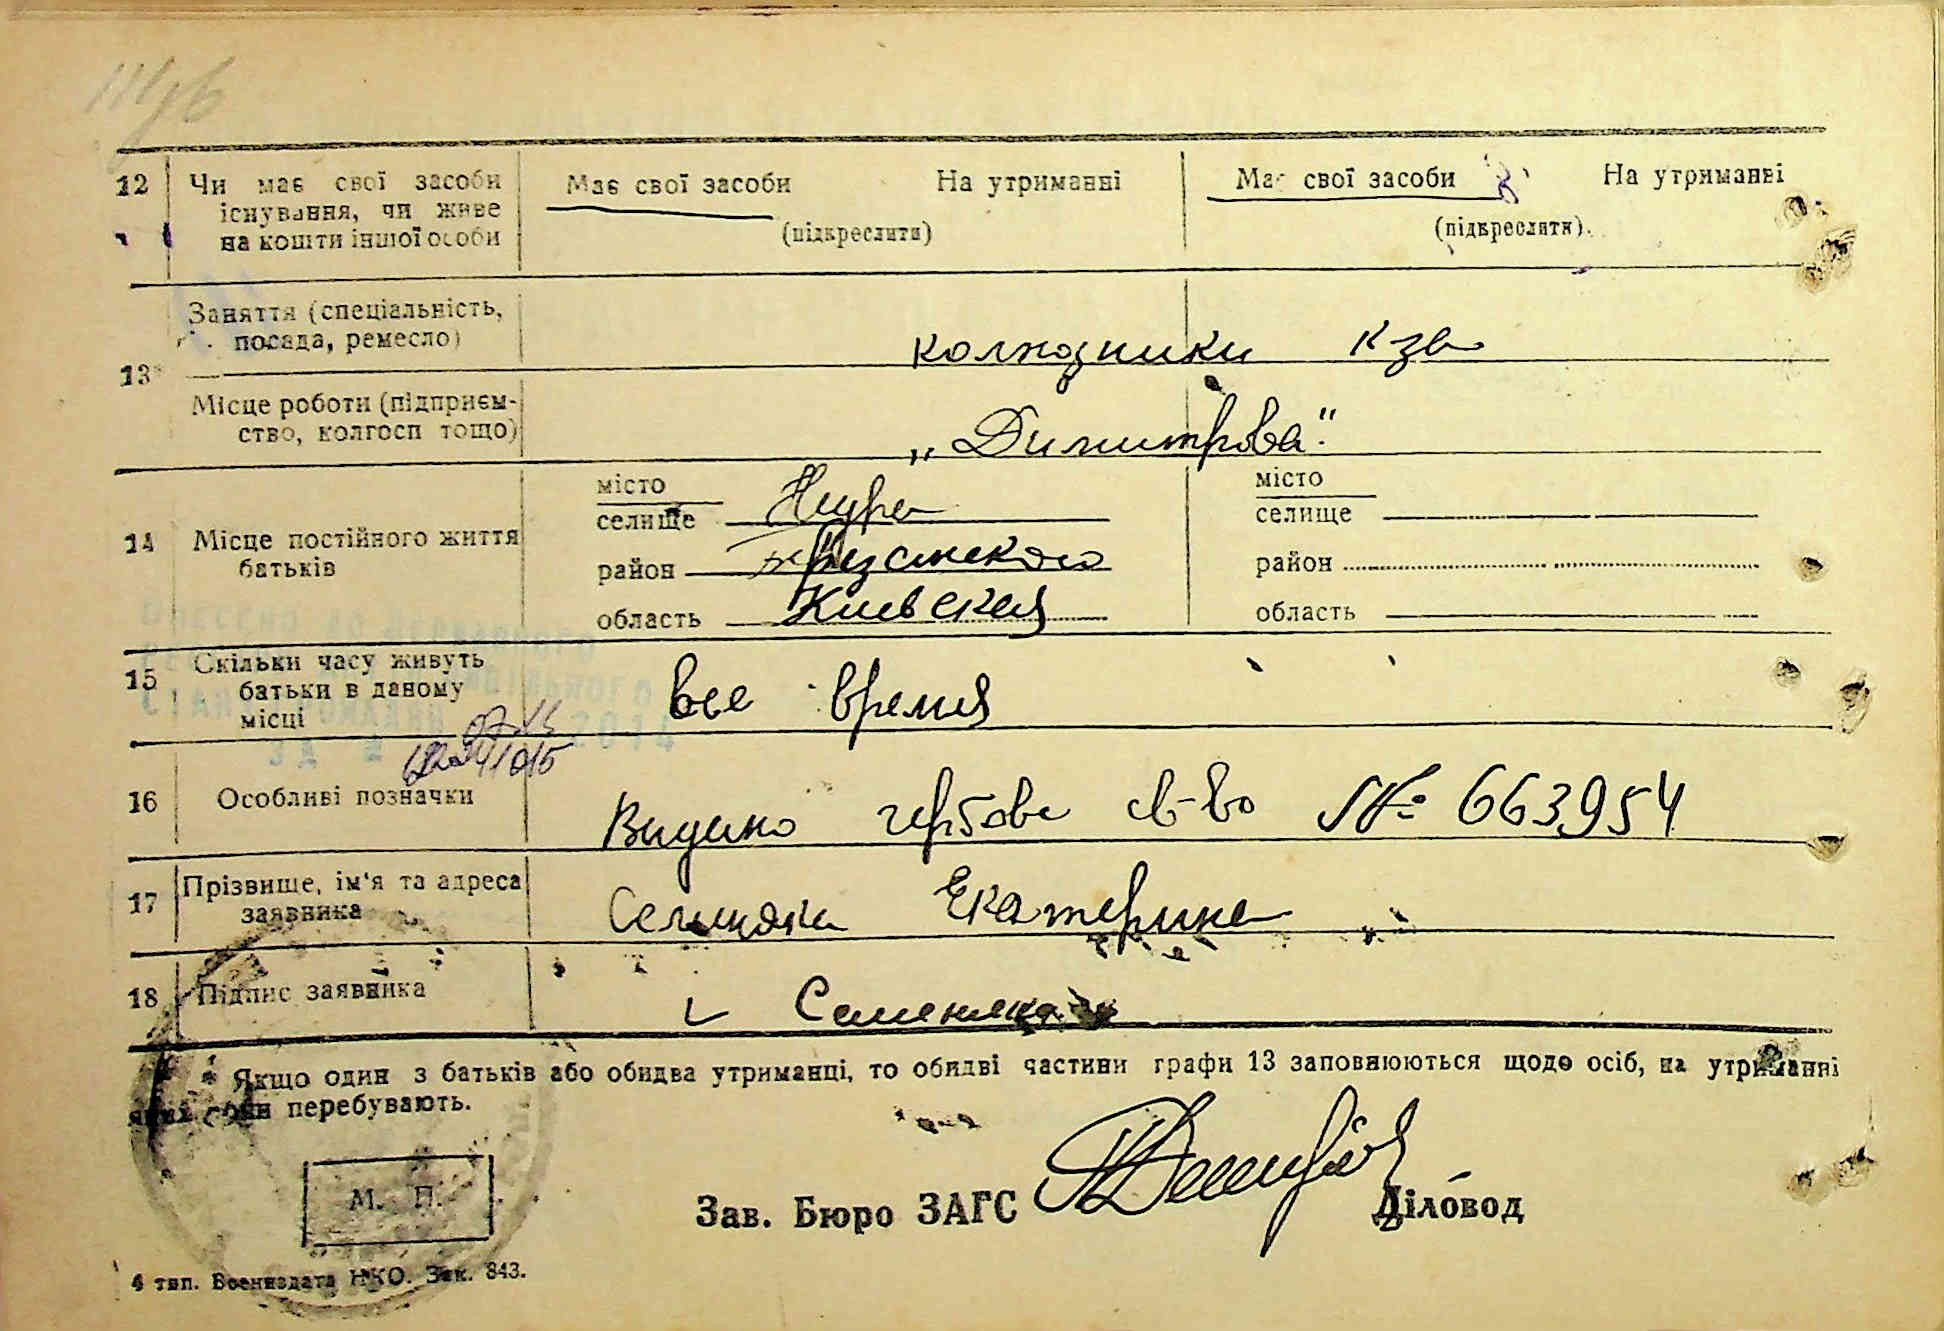 12 Чи має свої засоби існування, чи живе на кошти іншої особи
Має свої засоби На утриманні
(підкреслити)
Має свої засоби На утриманні
(підкреслити).
13 Заняття (спеціальність, посада, ремесло)
колхозники к-за
Місце роботи (підприєм-
ство, колгосп тощо)
„Димитрова"
14 Місце постійного життя
батьків
місто
селище
район
область Киевская
місто
селище
район
область
15 Скільки часу живуть
батьки в даному
місці
все время
16 Особливі позначки
Видано гербове св-во № 663954
17 Прізвище, ім'я та адреса
заявника
Екатерина
18 Підпис заявника
Семеняка
Якщо один з батьків або обидва утриманці, то обидві частини графи 13 заповнюються щодо осіб, на утриманні
яких вони перебувають.
М. П.
Зав. Бюро ЗАГС
Діловод
4 тип. Воениздата НКО. Зак. 843.